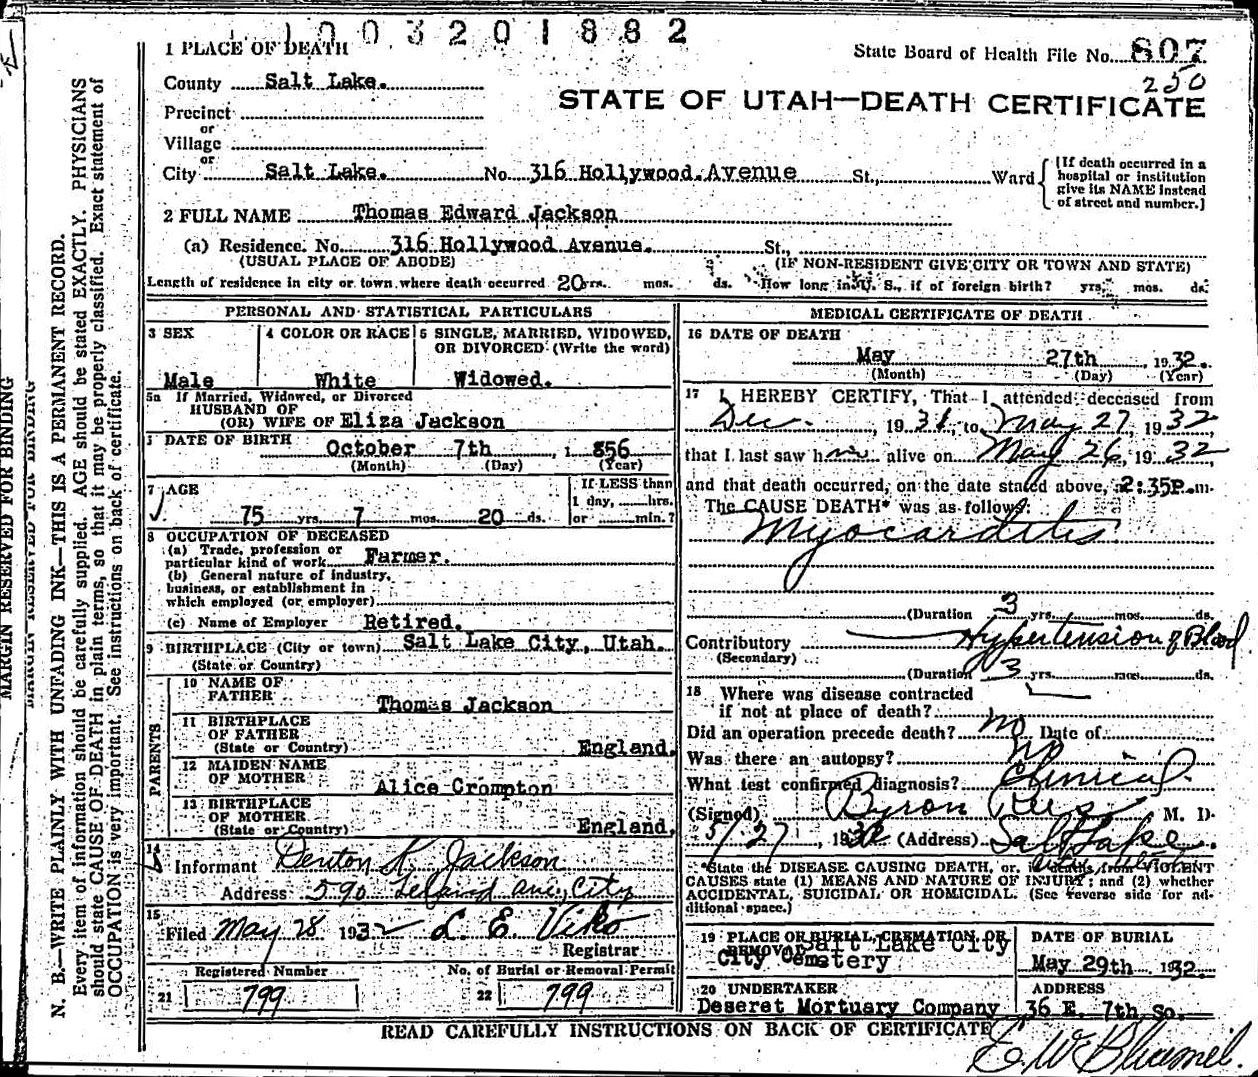 1003201882
1 PLACE OF DEATH
State Board of Health File No. 807
250
County Salt Lake.
STATE OF UTAH—DEATH CERTIFICATE
Precinct
or
Village
or
City Salt Lake. No. 316 Hollywood Avenue St., Ward
(If death occurred in a hospital or institution give its NAME instead of street and number.)
2 FULL NAME Thomas Edward Jackson
(a) Residence. No. 316 Hollywood Avenue. St.,
(USUAL PLACE OF ABODE) (IF NON-RESIDENT GIVE CITY OR TOWN AND STATE)
Length of residence in city or town where death occurred 20 yrs. mos. ds. How long in U. S., if of foreign birth? yrs. mos. ds.
PERSONAL AND STATISTICAL PARTICULARS
3 SEX
Male
4 COLOR OR RACE
White
5 SINGLE, MARRIED, WIDOWED,
OR DIVORCED (Write the word)
Widowed.
5a If Married, Widowed, or Divorced
HUSBAND OF
(OR) WIFE OF Eliza Jackson
DATE OF BIRTH
October 7th, 1 856
(Month) (Day) (Year)
7 AGE
75 yrs. 7 mos. 20 ds.
If LESS than
1 day, hrs.
or min.?
8 OCCUPATION OF DECEASED
(a) Trade, profession or
particular kind of work Farmer.
(b) General nature of industry,
business, or establishment in
which employed (or employer)
(c) Name of Employer Retired.
9 BIRTHPLACE (City or town) Salt Lake City, Utah.
(State or Country)
PARENTS
10 NAME OF
FATHER Thomas Jackson
11 BIRTHPLACE
OF FATHER
(State or Country) England.
12 MAIDEN NAME
OF MOTHER Alice Crompton
13 BIRTHPLACE
OF MOTHER
(State or Country) England.
14
Informant Denton Jackson
Address 590 Leland ave, City
15
Filed May 28 1932 L. E. Viko
Registrar
Registered Number
21 799
No. of Burial or Removal Permit
22 799
MEDICAL CERTIFICATE OF DEATH
16 DATE OF DEATH
May 27th 1932.
(Month) (Day) (Year)
17 I HEREBY CERTIFY, That I attended deceased from
Dec. , 1931, to May 27, 1932,
that I last saw him alive on May 26, 1932
and that death occurred, on the date stated above, at 2:35P.m.
The CAUSE DEATH* was as follows:
Myocarditis
(Duration 3 yrs. mos. ds.
Contributory Hypertension of Blood
(Secondary)
(Duration 3 yrs. mos. ds.
18 Where was disease contracted
if not at place of death?
Did an operation precede death? no Date of
Was there an autopsy? no
What test confirmed diagnosis? Clinical
(Signed) Byron Rees M. D.
5/27, 1932 (Address) Salt Lake
*State the DISEASE CAUSING DEATH, or, in deaths from VIOLENT
CAUSES state (1) MEANS AND NATURE OF INJURY; and (2) whether
ACCIDENTAL, SUICIDAL OR HOMICIDAL. (See reverse side for ad-
ditional space.)
19 PLACE OF BURIAL, CREMATION OR
REMOVAL Salt Lake City
City Cemetery
DATE OF BURIAL
May 29th 1932.
20 UNDERTAKER
Deseret Mortuary Company
ADDRESS
36 E. 7th So.
READ CAREFULLY INSTRUCTIONS ON BACK OF CERTIFICATE
MARGIN RESERVED FOR BINDING
MARGIN RESERVED FOR BINDING
N. B.—WRITE PLAINLY WITH UNFADING INK—THIS IS A PERMANENT RECORD.
Every item of information should be carefully supplied. AGE should be stated EXACTLY. PHYSICIANS
should state CAUSE OF DEATH in plain terms, so that it may be properly classified. Exact statement of
OCCUPATION is very important. See instructions on back of certificate.